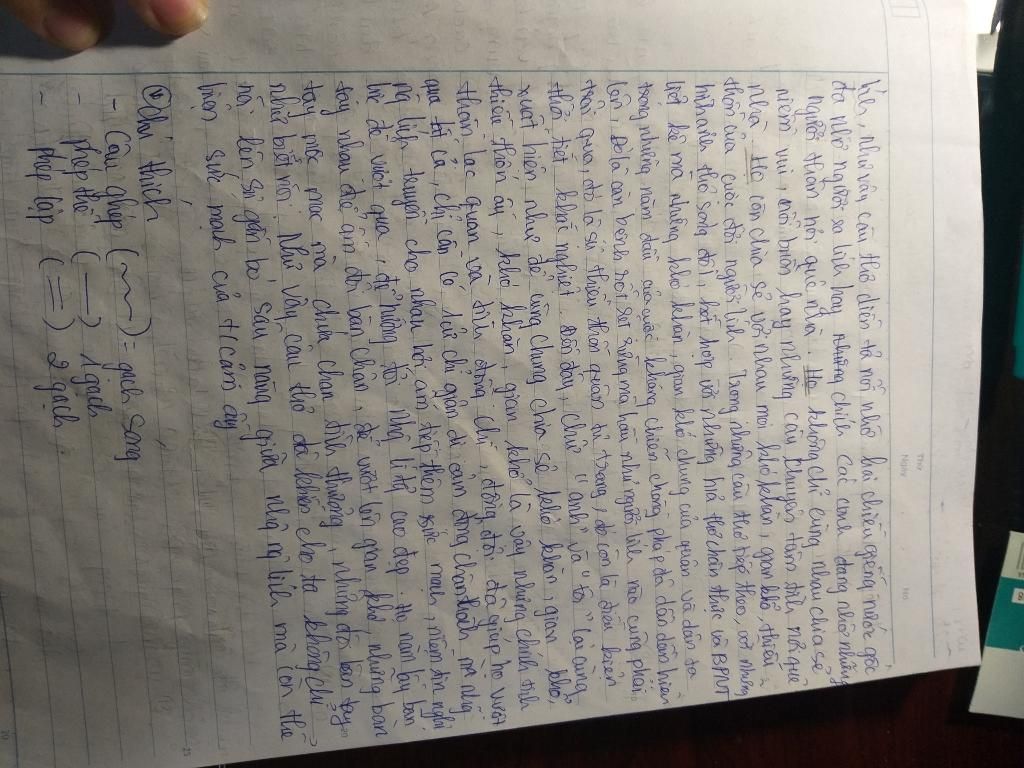 Thứ
Ngày
No.
vậy câu thơ diễn tả nỗi nhớ hai chiều giếng nước gốc
đa nhớ người ra lính hay chính các anh đang nhớ những
người thân nơi quê nhà. Họ không chỉ cùng nhau chia sẻ
niềm vui, nỗi buồn hay những câu chuyện tâm tình nơi quê
nhà. Họ còn chia sẻ với nhau mọi khó khăn, gian khổ, thiếu
thốn của cuộc đời người lính. Trong những câu thơ tiếp theo, với những
hình ảnh thơ song đôi, kết hợp với những h/a thơ chân thực và BPNT
liệt kê mà những khó khăn, gian khổ chung của quân và dân ta
trong những năm đầu của cuộc kháng chiến chống pháp đã dần dần hiện
lên, đó là căn bệnh sốt rét rừng mà hầu như người lính nào cũng phải
trải qua, đó là sự thiếu thốn quân tư trang, đó còn là điều kiện
thời tiết khắc nghiệt. Dưới đây, chữ "anh" và "tôi" lại cùng
xuất hiện như để cùng chung chia sẻ khó khăn, gian khổ,
thiếu thốn ấy, khó khăn, gian khổ là vậy nhưng chính tinh
thần lạc quan và tình đồng chí, đồng đội đã giúp họ vượt
qua tất cả, chỉ cần có cử chỉ giản dị cảm động chân thành mà những
ng lính truyền cho nhau hơi ấm tiếp thêm sức mạnh, niềm tin nghị
lực để vượt qua, để hướng tới nhg lí tg cao đẹp. Họ nắm lấy bàn
tay nhau để ấm đôi bàn chân, để vượt lên gian khổ, những bàn
tay mộc mạc mà chứa chan tình thương, nhưng đôi bàn tay
như biết nói. Như vậy câu thơ đã khiến cho ta không chỉ
nói lên sự gắn bó sâu nặng giữa những ng lính mà còn thể
hiện sức mạnh của t/cảm ấy
* Chú thích
- Câu ghép (~~) = gạch sóng
- phép thế (—) 1 gạch
- phép lặp (=) 2 gạch
20
25
20